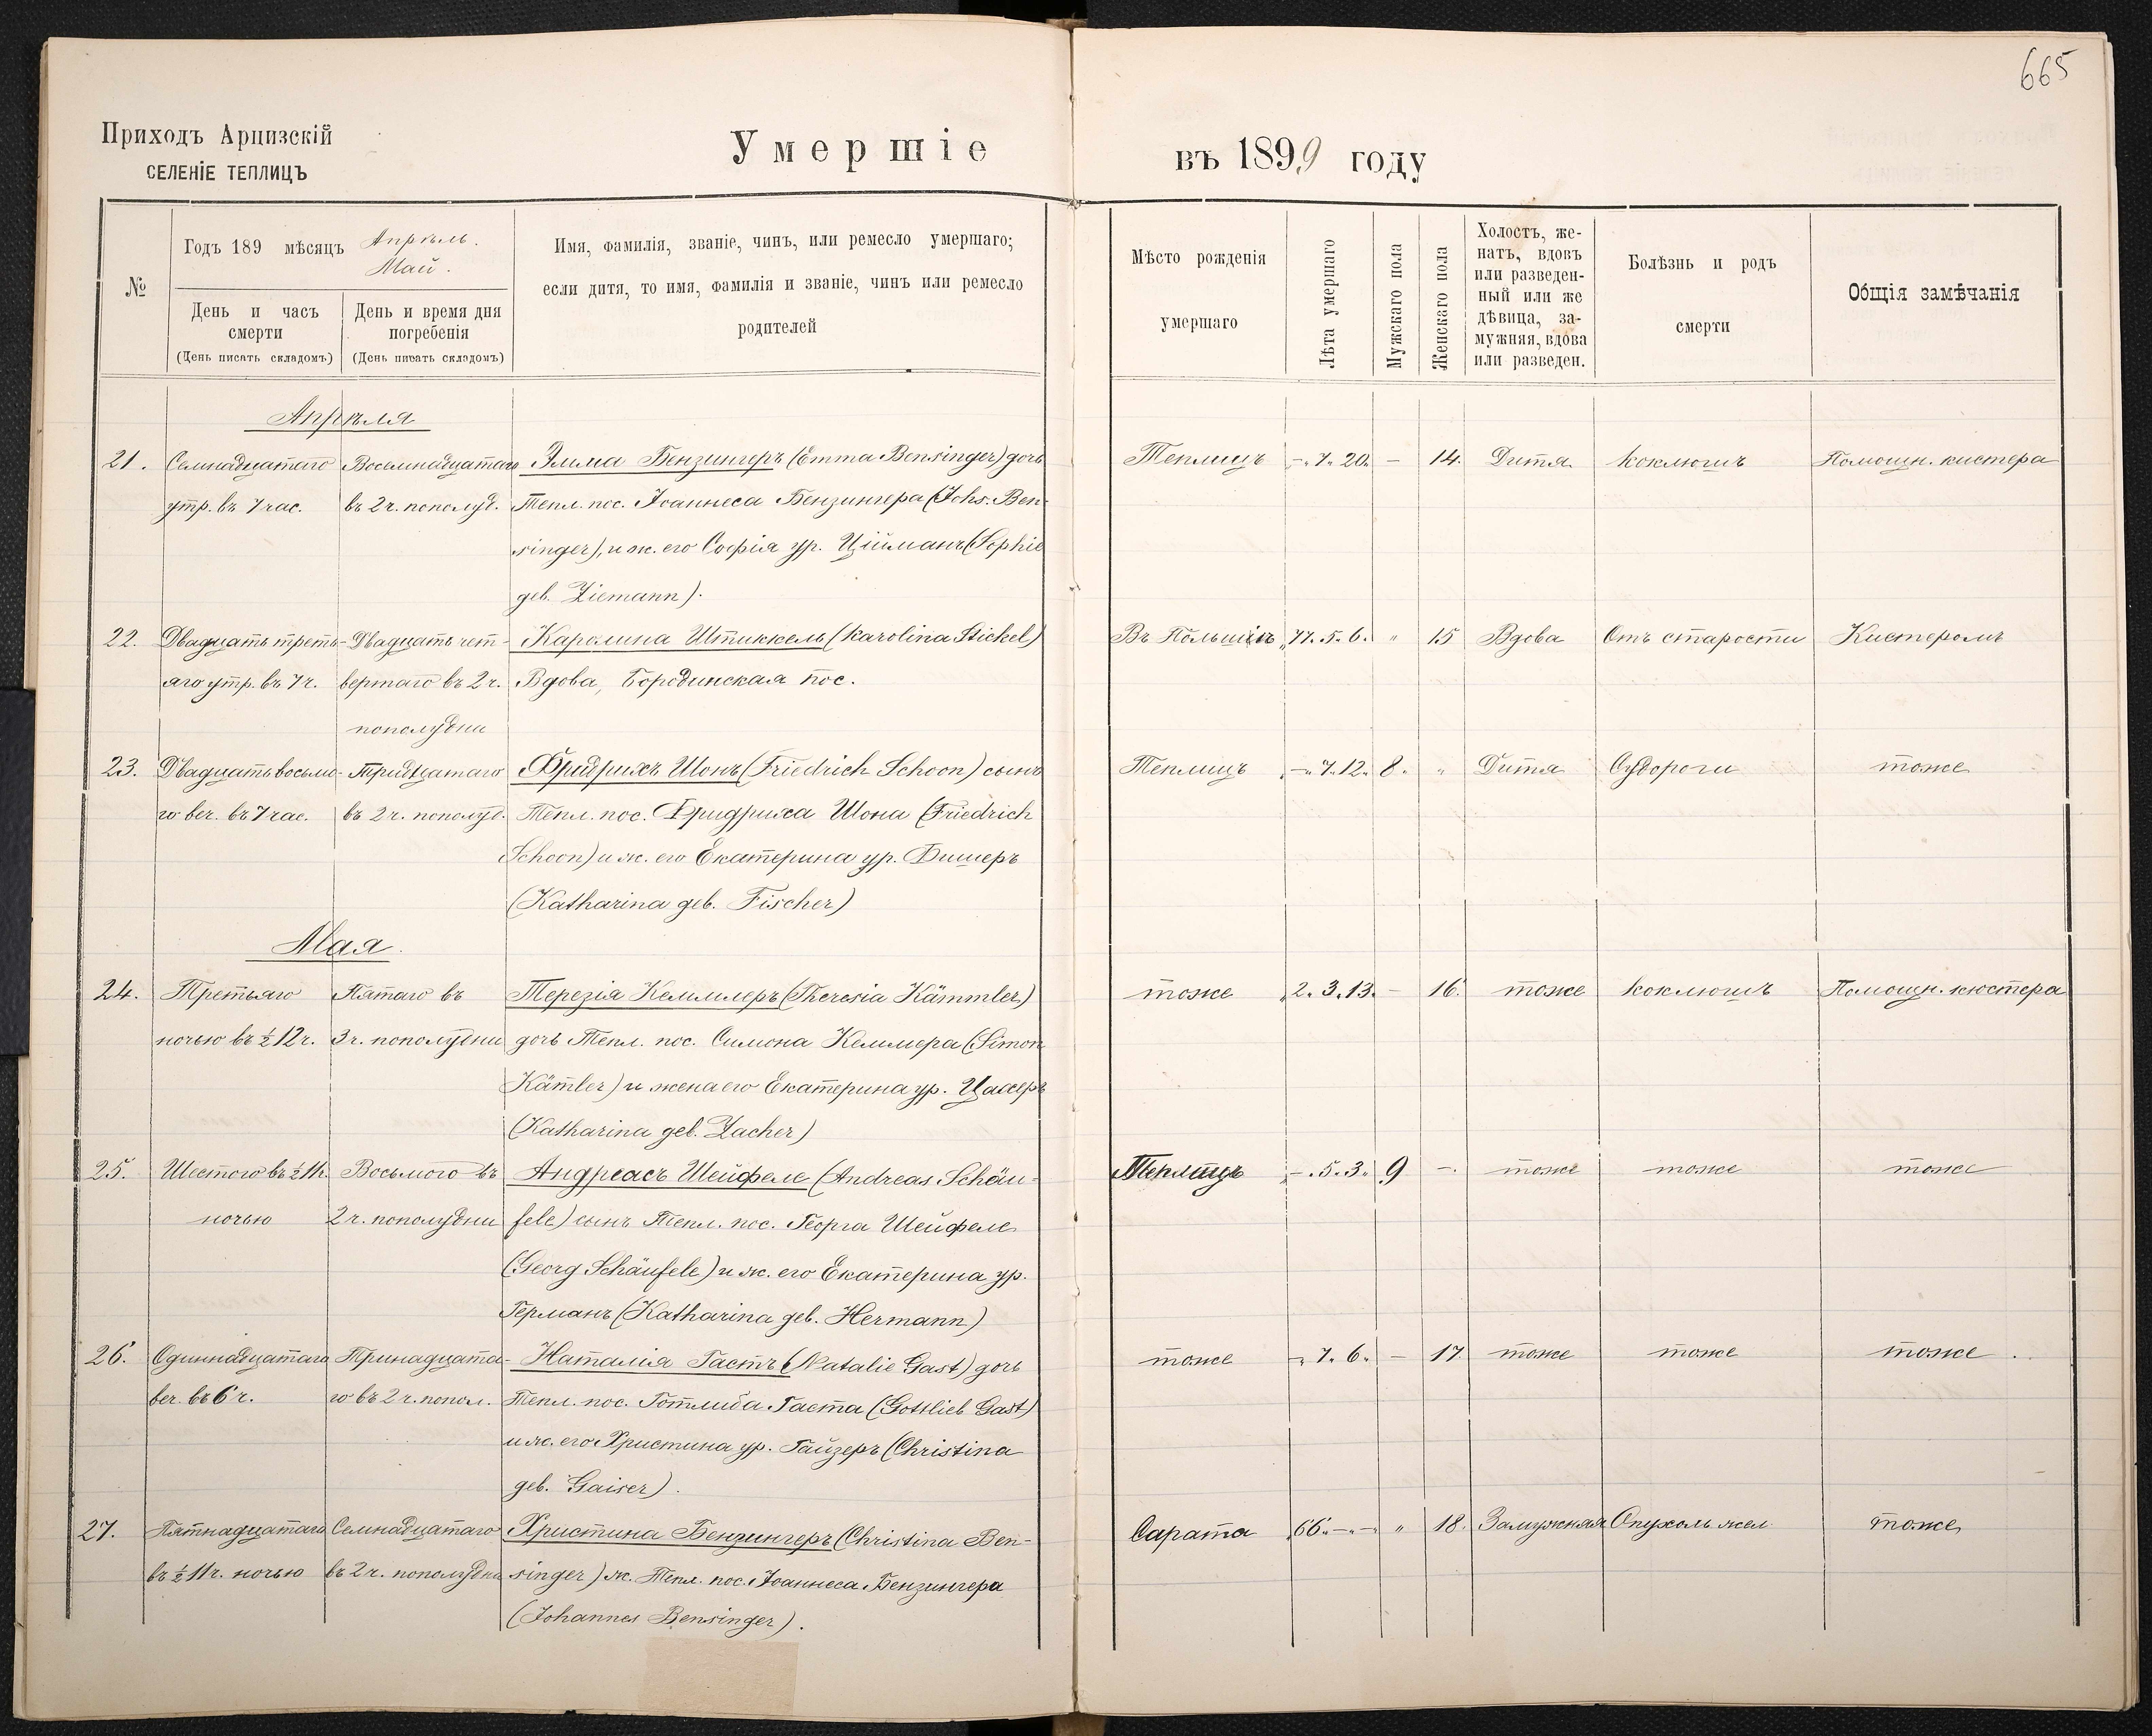 665
Приходъ Арцизскій
СЕЛЕНІЕ ТЕПЛИЦЪ
Умершіе
въ 1899 году
№
Годъ 189 мѣсяцъ Апрѣль.
Май.
День и часъ смерти
(День писать складомъ)
День и время дня погребенія
(День писать складомъ)
Имя, фамилія, званіе, чинъ, или ремесло умершаго;
если дитя, то имя, фамилія и званіе, чинъ или ремесло
родителей
Мѣсто рожденія
умершаго
Лѣта умершаго
Мужскаго пола
Женскаго пола
Холостъ, же-
натъ, вдовъ
или разведен-
ный или же
дѣвица, за-
мужняя, вдова
или разведен.
Болѣзнь и родъ
смерти
Общія замѣчанія
Апрѣля
21. Семнадцатаго Восемнадцатаго Эмма Бензингеръ (Emma Bensinger) дочь Теплицъ -„ 7„ 20„ - 14. Дитя. Коклюшъ Помощн. кистера
утр. въ 7 час. въ 2 ч. пополуд. Тепл. пос. Іоаннеса Бензингера (Johs. Ben-
singer), и ж. его Софія ур. Ційманъ (Sophie
geb. Ziemann).
22. Двадцать треть- Двадцать чет- Каролина Штиккель (Karolina Stickel) Въ Польшѣ „77. 5. 6. „ 15 Вдова Отъ старости Кистеромъ
яго утр. въ 7 ч. вертаго въ 2 ч. Вдова, Бородинская пос.
пополудни
23. Двадцать восьмо- Тридцатаго Фридрихъ Шонъ (Friedrich Schoon) сынъ Теплицъ „-„ 7„ 12„ 8. „ Дитя Судороги тоже
го веч. въ 7 час. въ 2 ч. пополуд. Тепл. пос. Фридриха Шона (Friedrich
Schoon) и ж. его Екатерина ур. Фишеръ
(Katharina geb. Fischer)
Мая.
24. Третьяго Пятаго въ Терезія Кеммлеръ (Theresia Kämmler) тоже „2„ 3„ 13„ - 16. тоже Коклюшъ Помощн. кюстера
ночью въ ½ 12 ч. 3 ч. пополудни дочь Тепл. пос. Симона Кеммлера (Simon
Kämler) и жена его Екатерина ур. Цахеръ
(Katharina geb. Zacher)
25. Шестого въ ½ 11 ч. Восьмого въ Андреасъ Шейфеле (Andreas Schäu- Теплицъ -. 5. 3. 9 -. тоже тоже тоже
ночью 2 ч. пополудни fele) сынъ Тепл. пос. Георга Шейфеле
(Georg Schäufele) и ж. его Екатерина ур.
Германъ (Katharina geb. Hermann)
26. Одиннадцатаго Тринадцата- Наталія Гастъ (Natalie Gast) дочь тоже -„ 7. 6„ - 17 тоже тоже тоже.
веч. въ 6 ч. го въ 2 ч. попол. Тепл. пос. Готлиба Гаста (Gottlieb Gast)
и ж. его Христина ур. Гайзеръ (Christina
geb. Gaiser).
27. Пятнадцатаго Семнадцатаго Христина Бензингеръ (Christina Ben- Сарата „66„ -„ -„ „ 18. Замужняя Опухоль жел. тоже
въ ½ 11 ч. ночью въ 2 ч. пополудни singer) ж. Тепл. пос. Іоаннеса Бензингера
(Johannes Bensinger).